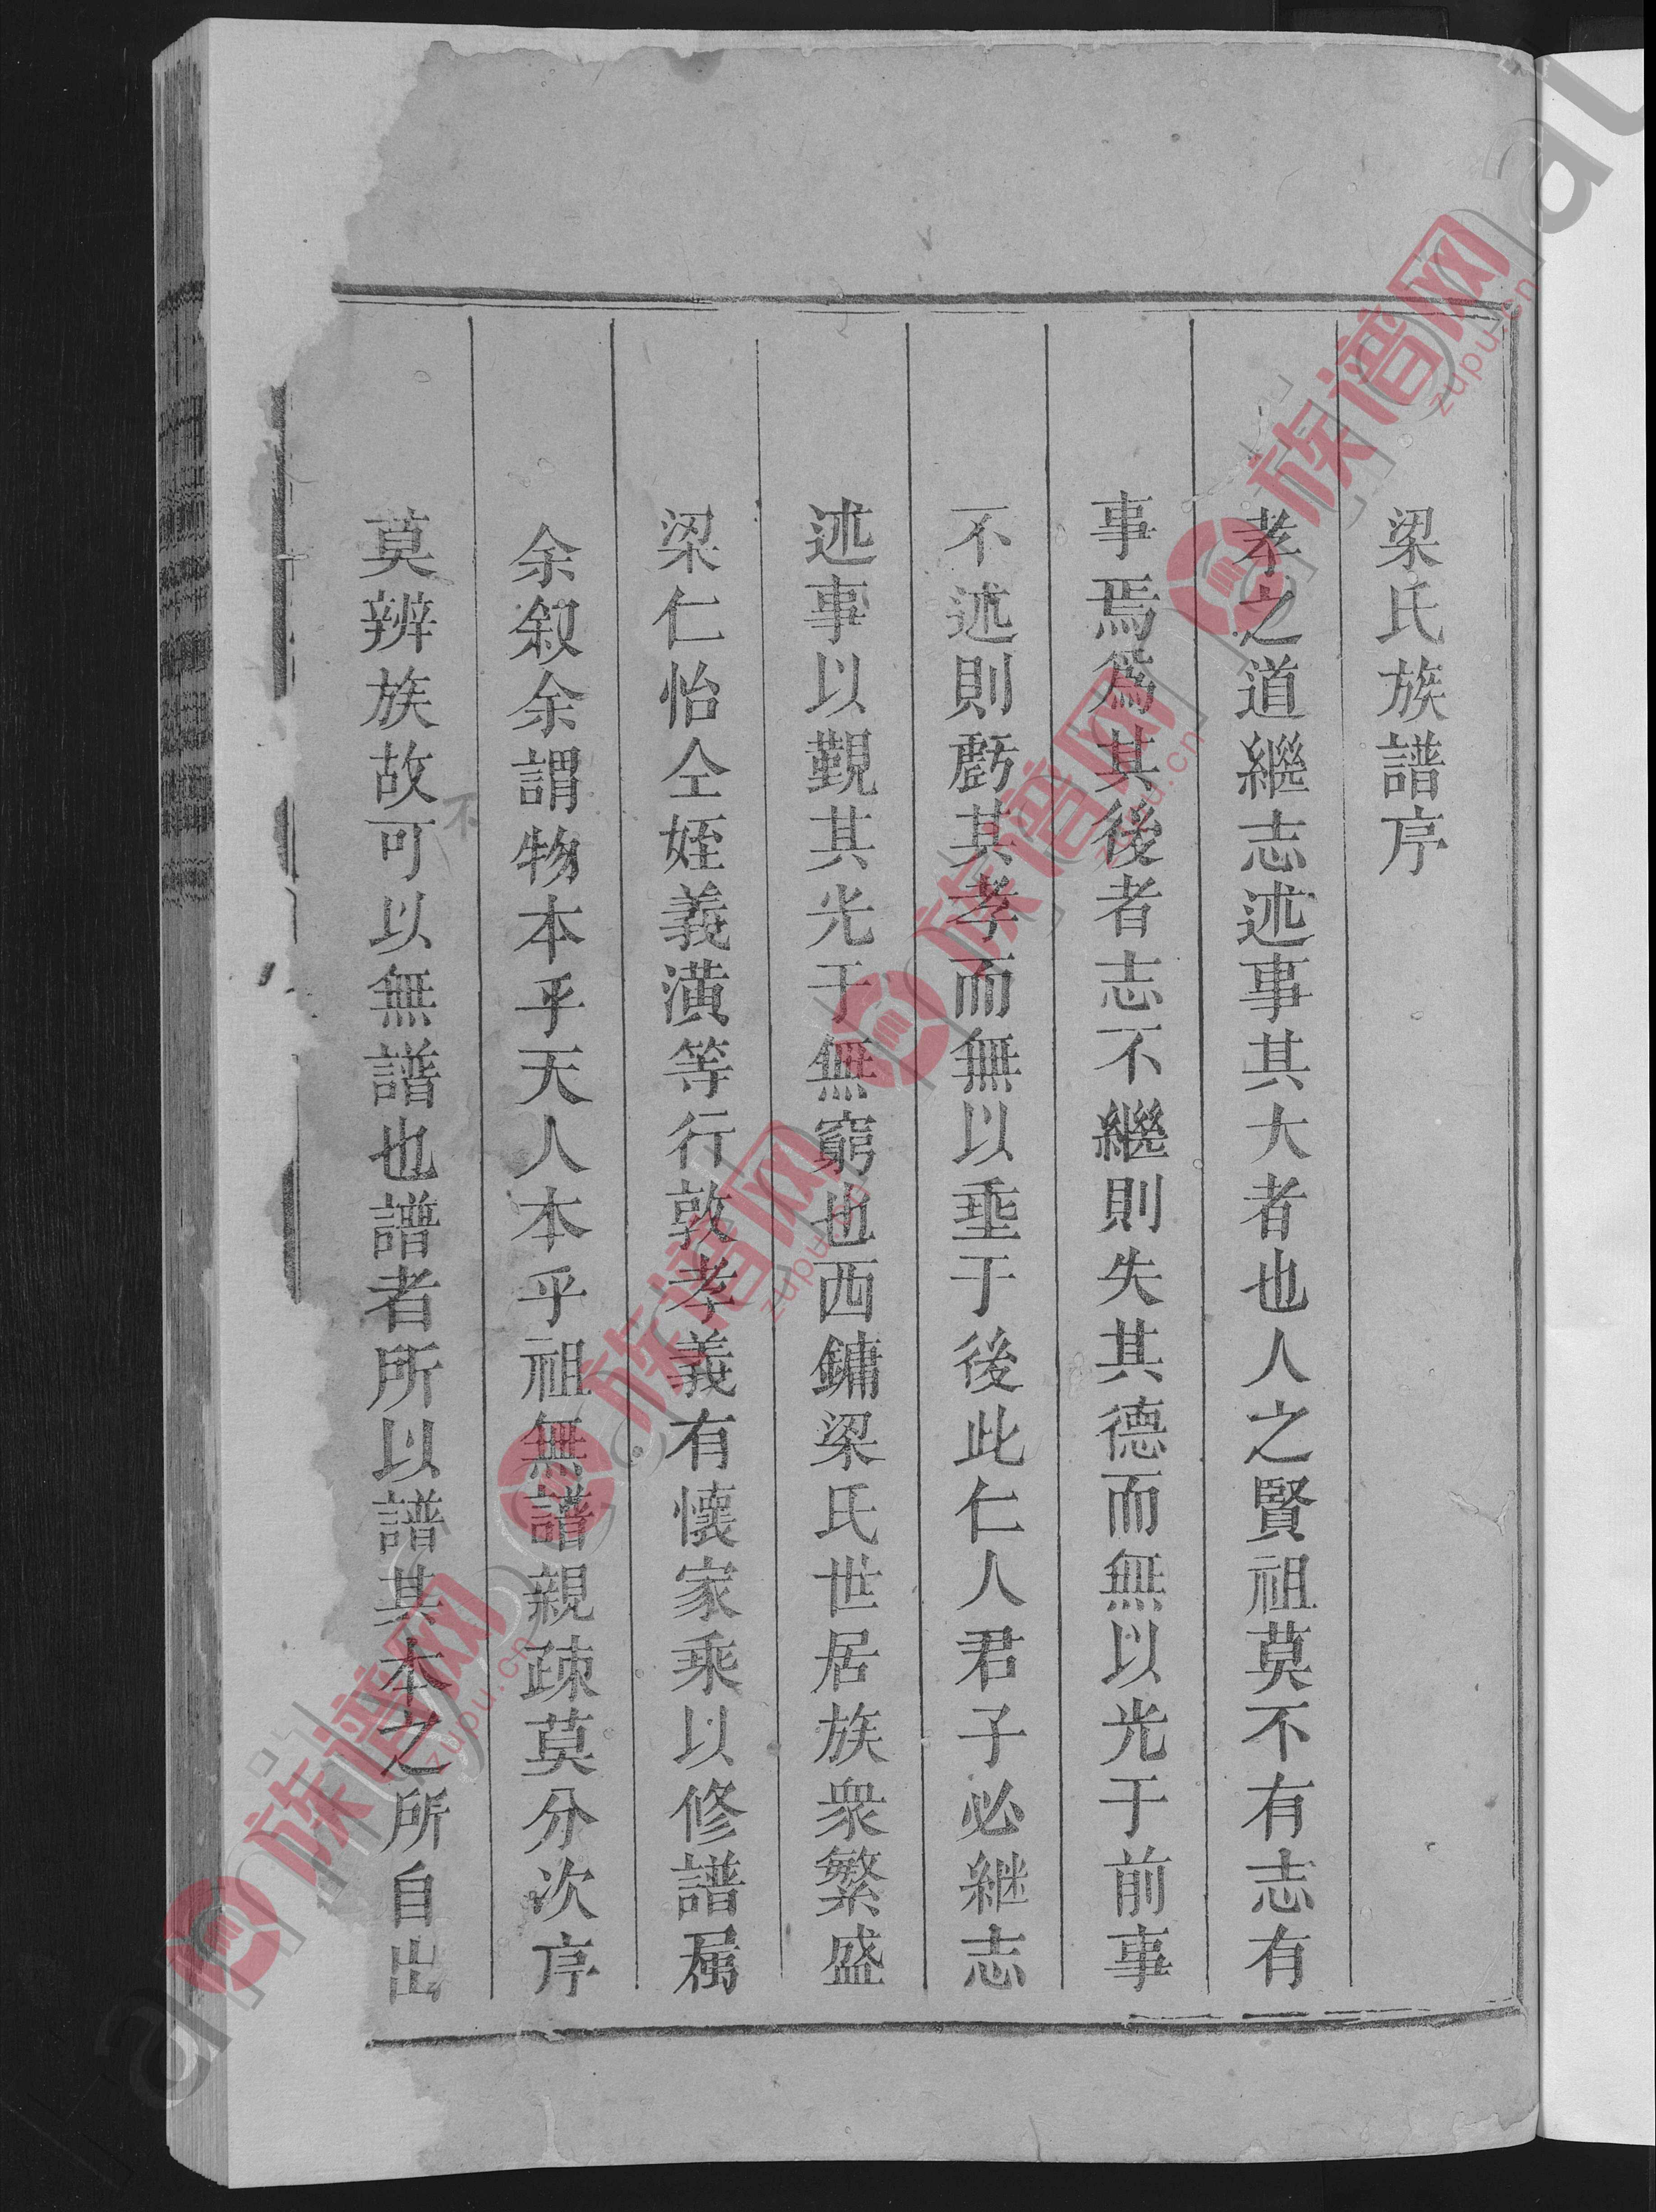 梁氏族譜序
孝之道繼志述事其大者也人之賢祖莫不有志有
事焉為其後者志不繼則失其德而無以光于前事
不述則虧其孝而無以垂于後此仁人君子必継志
述事以觀其光于無窮也西鏞梁氏世居族衆繁盛
梁仁怡仝姪義潢等行敦孝義有懷家乘以修譜属
余叙余謂物本乎天人本乎祖無譜親疎莫分次序
莫辨族故可以無譜也譜者所以譜其本之所自出
不
族谱网
zupu.cn
族谱网
zupu.cn
族谱网
zupu.cn
族谱网
zupu.cn